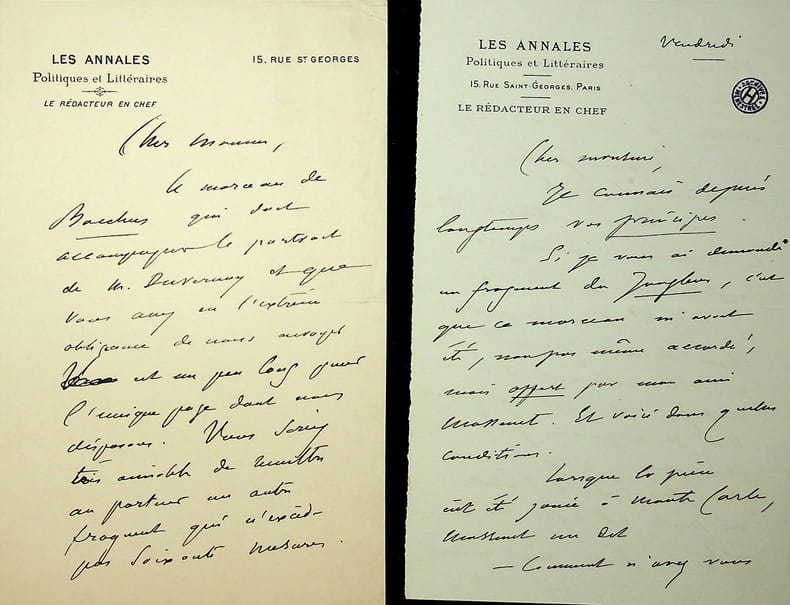 LES ANNALES
Politiques et Littéraires
LE RÉDACTEUR EN CHEF
15. RUE ST GEORGES
Cher Monsieur,
Le morceau de
Bacchus qui doit
accompagner le portrait
de M. Duvernoy et que
vous avez eu l'extrême
obligeance de nous envoyer
est un peu long pour
l'unique page dont nous
disposons. Vous seriez
très aimable de remettre
au porteur un autre
fragment qui n'excède
pas soixante mesures.
LES ANNALES
Politiques et Littéraires
15, RUE SAINT-GEORGES, PARIS
LE RÉDACTEUR EN CHEF
Vendredi
ARCHIVES
H
MENESTREL
Cher monsieur,
Je connais depuis
longtemps vos principes.
Si je vous ai demandé
un fragment du Jongleur, c'est
que ce morceau m'avait
été, non pas même accordé,
mais offert par mon ami
Massenet. Et voici dans quelles
conditions.
Lorsque la pièce
eut été jouée à Monte Carlo,
Massenet me dit
— Comment n'avez vous